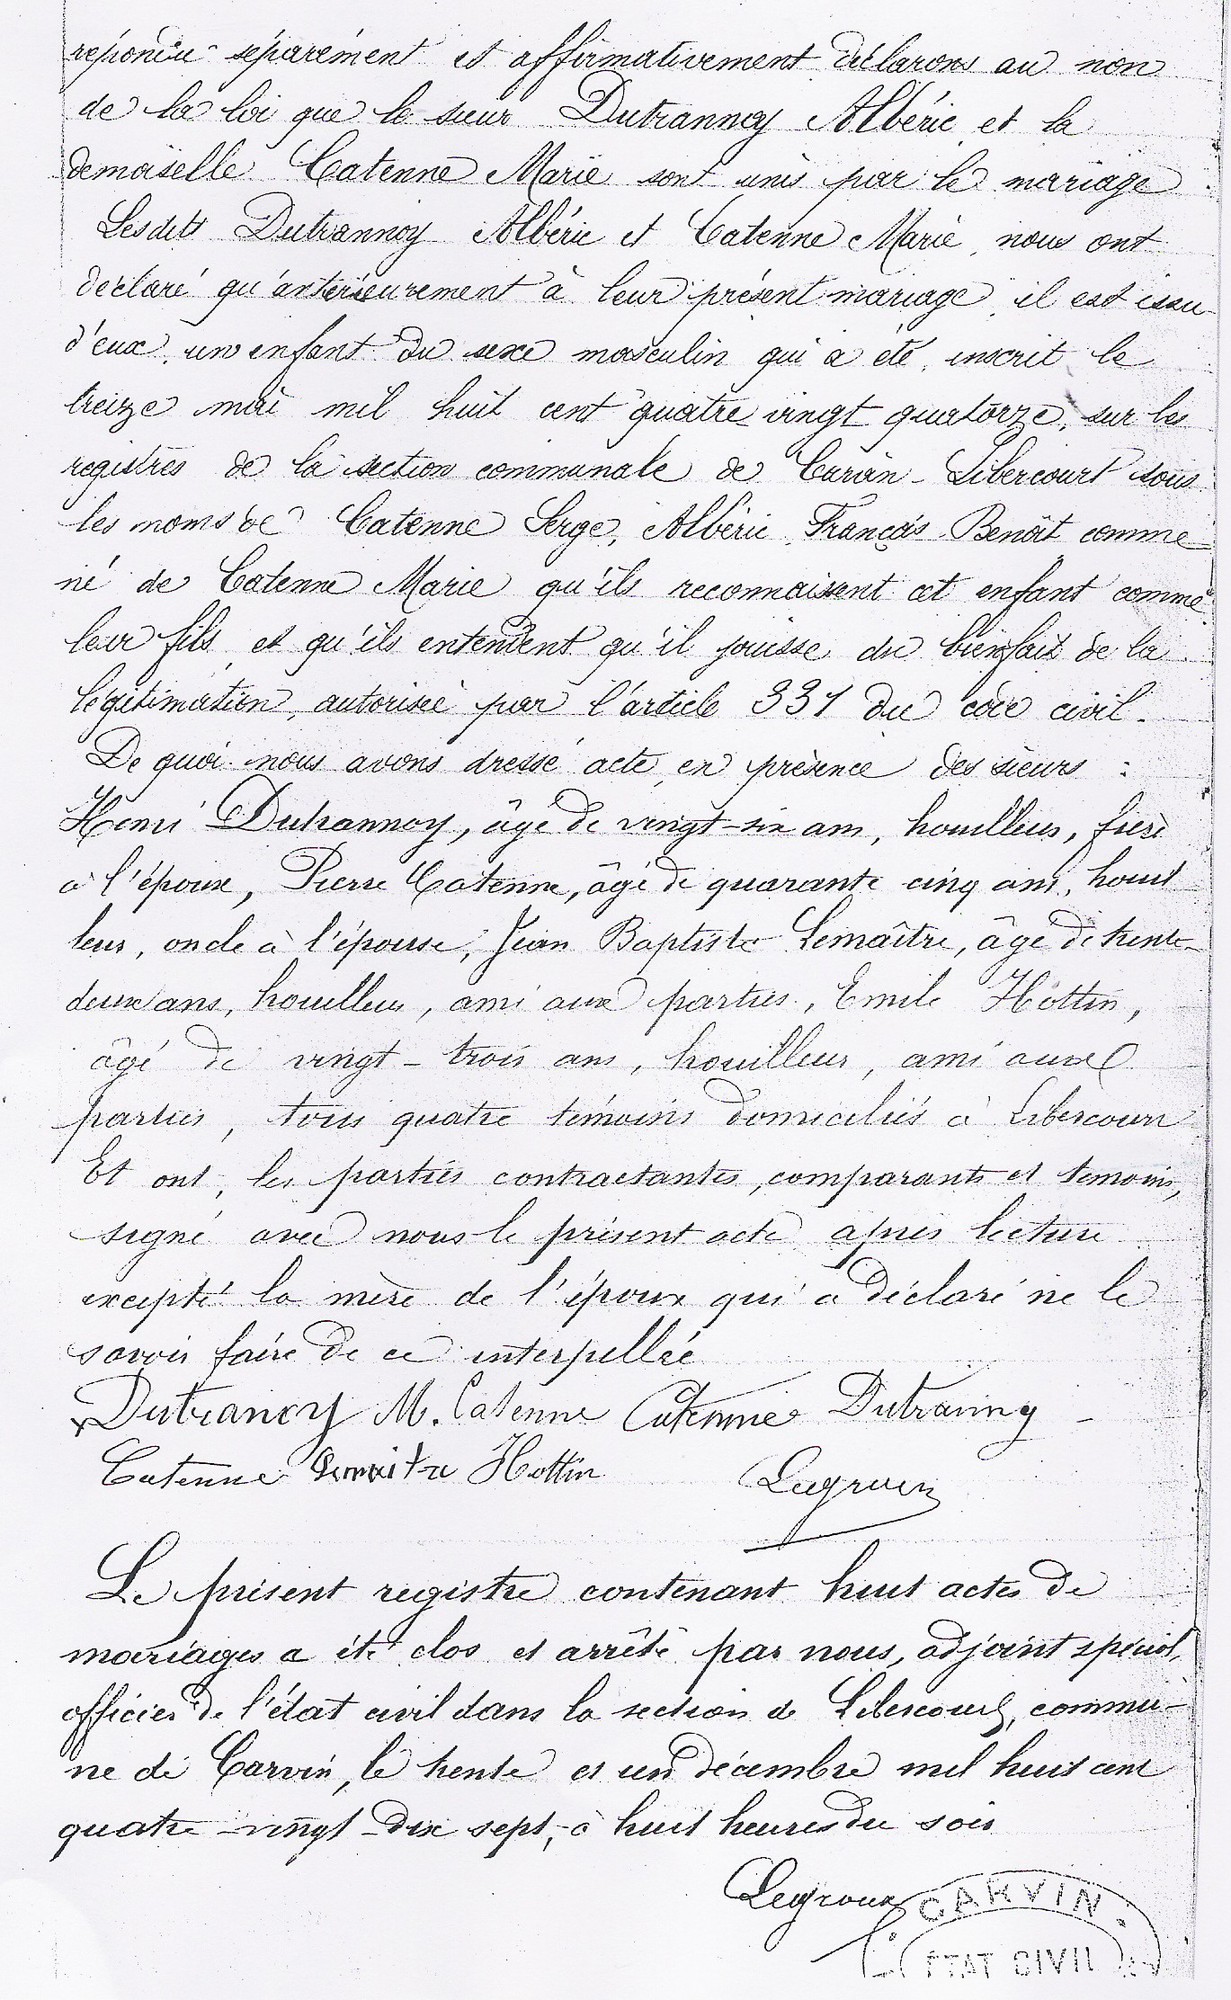 répondu séparément et affirmativement déclarons au non
de la loi que le sieur Dutrannoy Albéric et la
demoiselle Catenne Marie sont unis par le mariage
Lesdits Dutrannoy Albéric et Catenne Marie, nous ont
déclaré qu'antérieurement à leur présent mariage, il est issu
d'eux, un enfant du sexe masculin qui a été, inscrit le
treize mai mil huit cent quatre vingt quatorze, sur les
registres de la section communale de Carvin-Libercourt sous
les noms de Catenne Serge, Albéric, François Benoît comme
né de Catenne Marie qu'ils reconnaissent cet enfant comme
leur fils, et qu'ils entendent qu'il jouisse du bienfait de la
légitimation, autorisée par l'article 331 du code civil.
De quoi nous avons dressé acte en présence des sieurs :
Henri Dutrannoy, âgé de vingt-six ans, houilleur, frère
à l'époux, Pierre Catenne, âgé de quarante cinq ans, houil
leur, oncle à l'épouse, Jean Baptiste Lemaître, âgé de trente-
deux ans, houilleur, ami aux parties, Emile Hottin,
âgé de vingt-trois ans, houilleur, ami aux
parties, tous quatre témoins domiciliés à Libercourt
Et ont, les parties contractantes, comparants et témoins,
signé avec nous le présent acte après lecture
excepté la mère de l'époux qui a déclaré ne le
savoir faire de ce interpellée
Dutrancy M. Catenne Catenne Dutrannoy
Catenne Lemaitre Hottin Legroux
Le présent registre contenant huit actes de
mariages a été clos et arrêté par nous, adjoint spécial,
officier de l'état civil dans la section de Libercourt, commu-
ne de Carvin, le trente et un décembre mil huit cent
quatre-vingt-dix sept, à huit heures du soir
Legroux
CARVIN
ÉTAT CIVIL